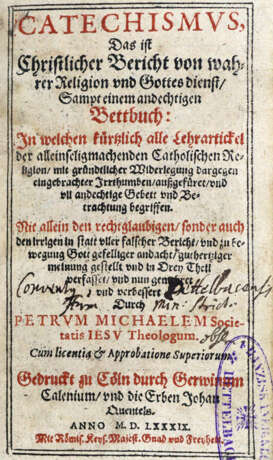 CATECHISMVS,
Das ist
Christlicher Bericht von wah-
rer Religion vnd Gottes dienst/
Sampt einem andechtigen
Bettbuch:
In welchen kürtzlich alle Lehrartickel
der alleinseligmachenden Catholischen Re-
ligion/ mit gründtlicher Widerlegung dargegen
eingebrachter Irrthumben/außgefüret/ vnd
vil andechtige Gebett vnd Be-
trachtung begriffen.
Mit allein den rechtglaubigen/ sonder auch
den Irrigen in statt viler falscher Bericht/ vnd zu be-
wegung Gott gefelliger andacht/ guthertziger
meinung gestellt vnd in Drey Theil
verfasset/ vnd nun
vnd verbessert
Durch
PETRVM MICHAELEM Socie-
tatis IESV Theologum.
Cum licentia & Approbatione Superiorum.
Gedruckt zu Cöln durch Gerwinum
Calenium/ vnd die Erben Johan
Quentels.
ANNO M.D.LXXXIX.
Mit Römis. Keys. Majest. Gnad vnd Freyheit.